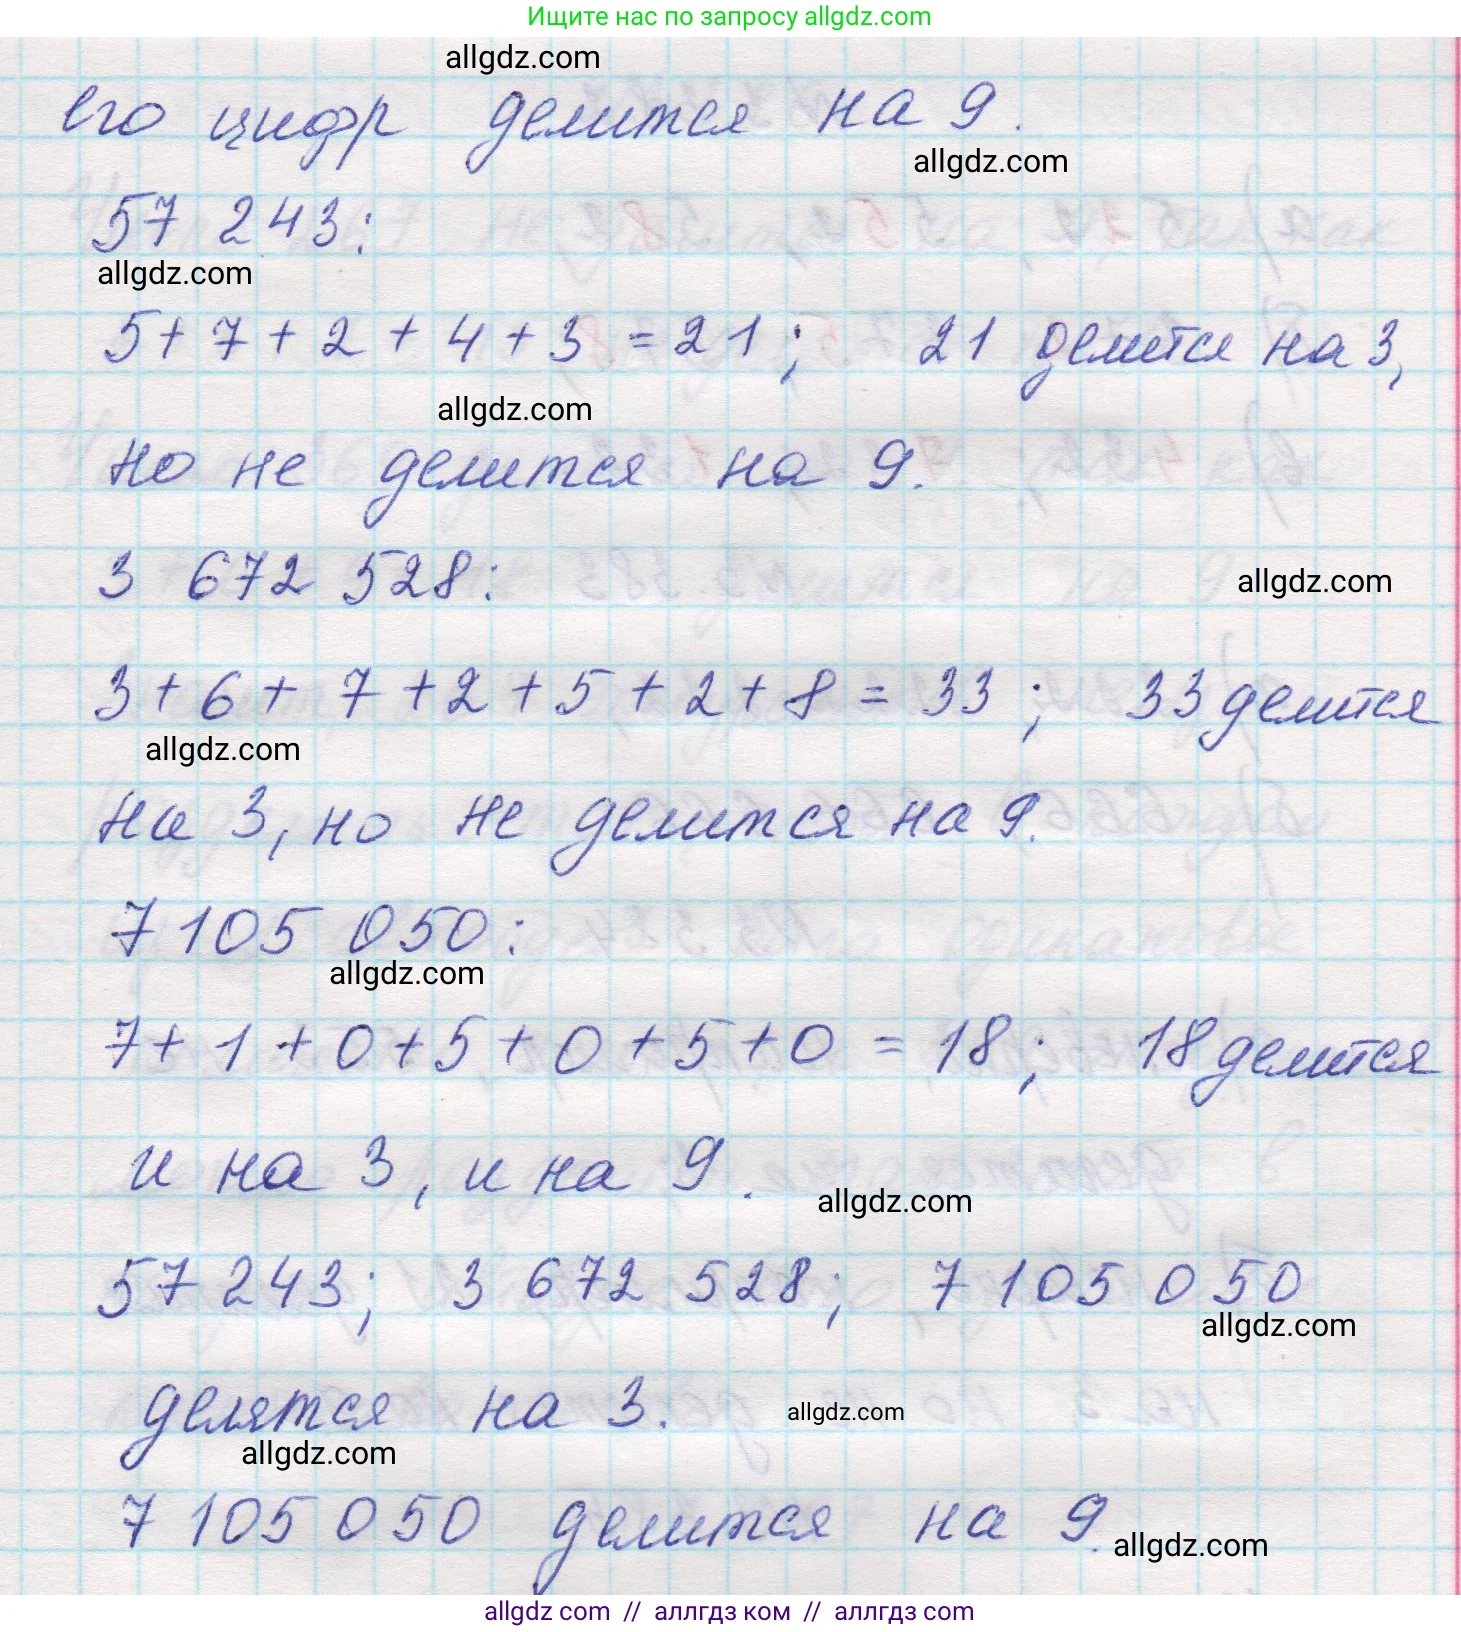 Ищите нас по запросу allgdz.com
allgdz.com
его цифр делится на 9.
allgdz.com
57 243:
allgdz.com
5+7+2+4+3=21; 21 делится на 3,
allgdz.com
но не делится на 9.
3 672 528:
allgdz.com
3+6+7+2+5+2+8=33; 33 делится
allgdz.com
на 3, но не делится на 9.
7 105 050:
allgdz.com
7+1+0+5+0+5+0=18; 18 делится
и на 3, и на 9.
allgdz.com
57 243; 3 672 528; 7 105 050
allgdz.com
делятся на 3.
allgdz.com
allgdz.com
7 105 050 делится на 9.
allgdz.com
allgdz com // аллгдз ком // аллгдз com